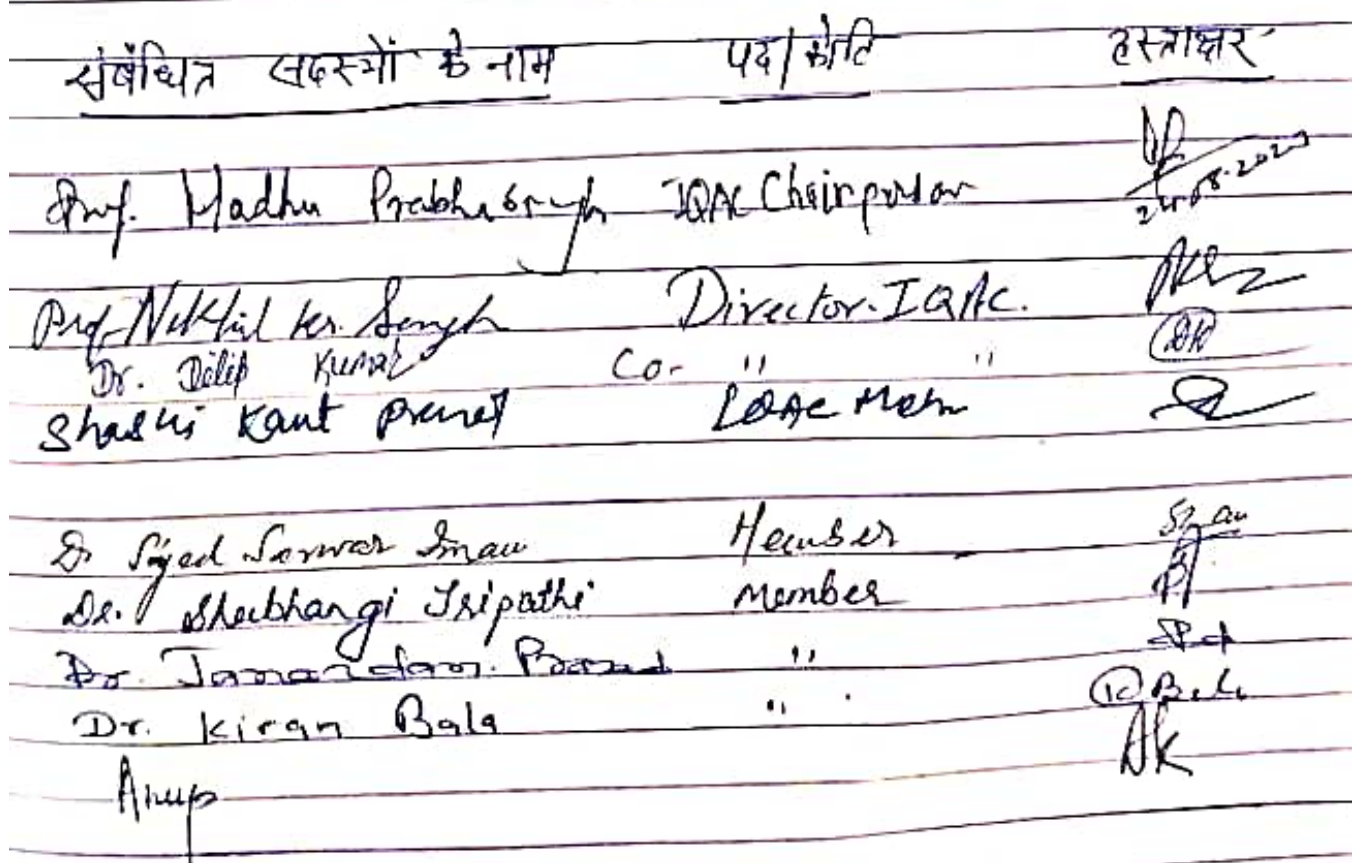 संबंधित सदस्यों के नाम पद/कोटि हस्ताक्षर
Prof. Madhu Prabha Singh IQAC Chairperson
24.08.2023
Prof. Nikhil Kr. Singh Director. IQAC.
Dr. Dilip Kumar Co- " " DK
Shashi Kant IQAC Mem
Dr Syed Sarwar Imam Member
Dr. Shubhangi Tripathi Member
Dr. Janardan Prasad "
Dr. Kiran Bala " K Bala
Anup AK